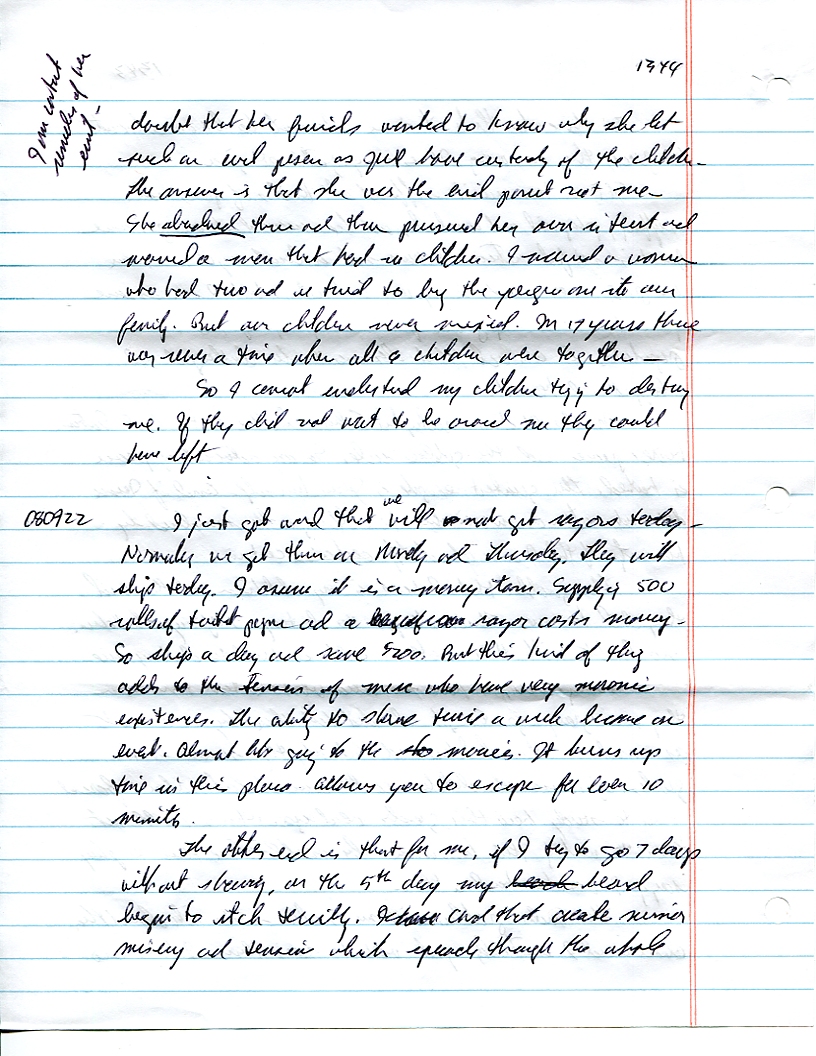 1344
I am
of her
doubt that her friends wanted to know why she let
such an evil person as Jeff have custody of the children -
The answer is that she was the evil parent not me -
She abandoned them and then pursued her own intent and
married a man that had no children. I married a woman
who had two and we tried to bring the younger one into our
family. But our children never mixed. In 17 years there
was never a time when all 6 children were together -
So I cannot understand my children trying to destroy
me. If they did not want to be around me they could
have left
080922
I just got word that we will not get razors today -
Normally we get them on Monday and Thursday. They will
skip today. I assume it is a money item. Supplying 500
rolls of toilet paper and a razor costs money -
So skip a day and save $200. But this kind of thing
adds to the tension of men who have very moronic
existences. The ability to shave twice a week became an
event. Almost like going to the movies. It burns up
time in this place. Allows you to escape for even 10
minutes.
The other end is that for me, if I try to go 7 days
without shaving, on the 5th day my beard
begins to itch terribly. And that create minor
misery and tension which spreads through the whole